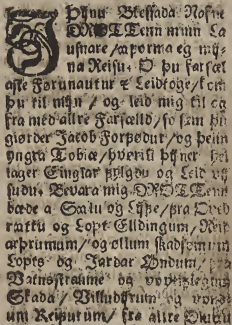 J Þijnu Blessada Nafne
DROTTenn minn Lau
snare/ aporma eg mij-
na Reisu. O þu farsæl
aste Førunautur & Leidtoge/ kom
þu til mijn/ og leid mig til og
fra med allre Farsælld/ so sem þu
giørder Jacob Forfødur/ og þeim
yngra Tobiæ/ hveriū þijner
lager Einglar fylgdu og Leid vij
sudu. Bevara mig DROTTenn
bæde a Siæ og
rättu og Lopt Elldingum/
ærþrumum/ og øllum skadsømum
Lopts og Jardar Øndum/ fra
Vatnsstraume og
Skada/ Villudyrum og
um Reisutum/ fra allre